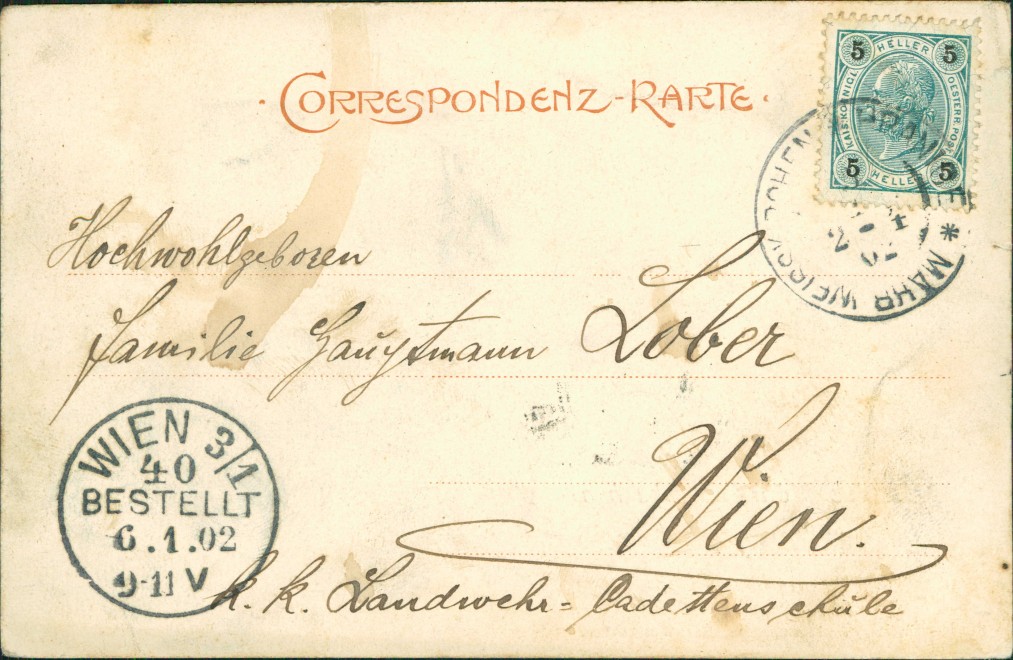 · CORRESPONDENZ-KARTE ·
5 HELLER 5
KAIS. KÖNIGL. OESTERR. POST
5 HELLER 5
* MÄHR. WEISSK
2
02
Hochwohlgeboren
Familie Hauptmann Lober
Wien.
k. k. Landwehr= Cadettenschule
WIEN 3/1
40
BESTELLT
6.1.02
9-11 V